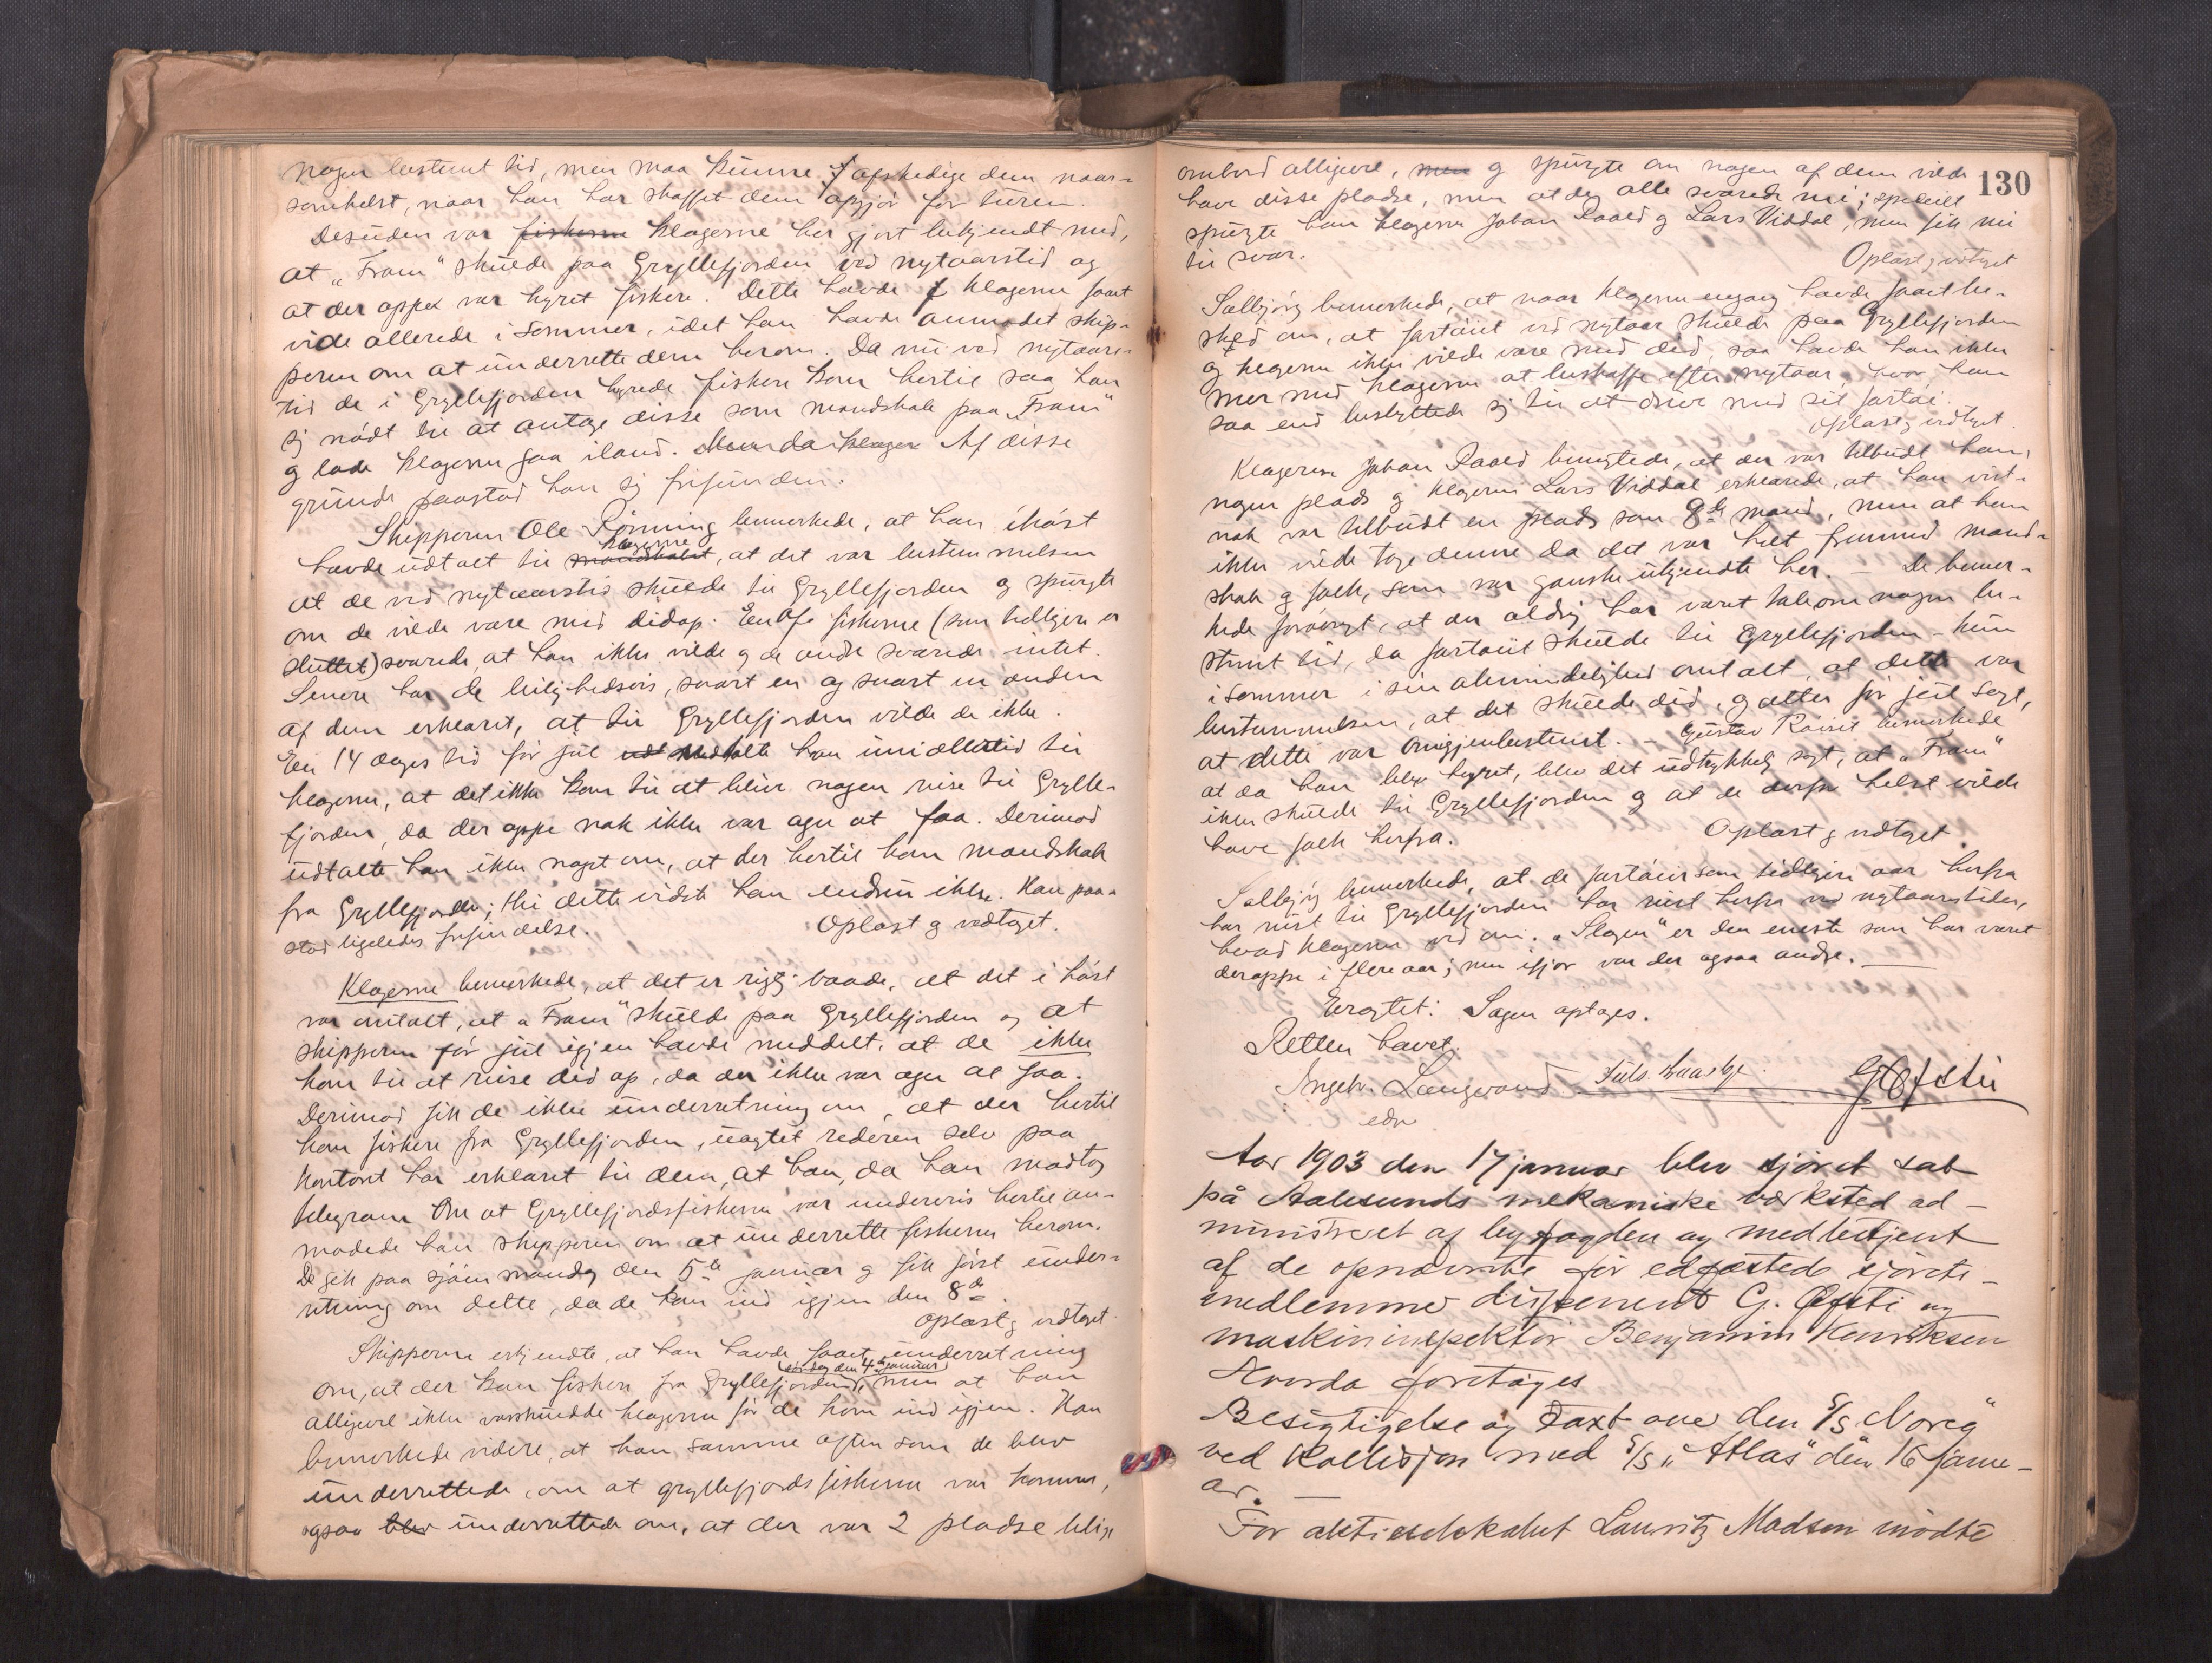 nogen bestemt tid, men maa kunne afskedige dem naar-
somhelst, naar han har skaffet dem opgjør for turen.
Desuden var fiskerne klagerne her gjort bekjendt med,
at "Fram" skulde paa Gryllefjorden ved nytaarstid og
at der oppe var hyret fiskere. Dette havde klagerne faaet
vide allerede i sommer, idet han havde anmodet skip-
peren om at underrette dem herom. Da nu ved nytaars-
tid de i Gryllefjorden hyrede fiskere kom hertil saa han
sig nødt til at antage disse som mandskab paa "Fram"
og lade klagerne gaa iland. Men da klager Af disse
grunde paastod han sig frifunden.
Skipperen Ole Rønning bemerkede, at han ihøst
klagerne
havde udtalt til mandskabet, at det var bestemmelsen
at de ved nytaarstid skulde til Gryllefjorden og spurgte
om de vilde være med didop. En af fiskerne (som tidligere er
sluttet) svarede, at han ikke vilde og de andre svarede intet.
Senere har de leilighedsvis, snart en og snart en anden
af dem erklæret, at til Gryllefjorden vilde de ikke.
En 14 dages tid før jul udt meddelte han imidlertid til
klagerne, at det ikke kom til at blive nogen reise til Grylle-
fjorden, da der oppe nok ikke var agn at faa. Derimod
udtalte han ikke noget om, at der hertil kom mandskab
fra Gryllefjorden; thi dette vidste han endnu ikke. Han paa-
stod ligeledes frifindelse. Oplæst og vedtaget.
Klagerne bemerkede, at det er rigtig baade, at det i høst
var omtalt, at "Fram" skulde paa Gryllefjorden og at
skipperen før jul igjen havde meddelt, at de ikke
kom til at reise did op, da der ikke var agn at faa.
Derimod fik de ikke underretning om, at der hertil
kom fiskere fra Gryllefjorden, uagtet rederen selv paa
kontoret har erklæret til dem, at han, da han modtog
telegram om at Gryllefjordsfiskerne var underveis hertil an-
modede han skipperen om at underrette fiskerne herom.
De gik paa sjøen mandag den 5te januar og fik først under-
retning om dette, da de kom ind igjen den 8de.
oplæst og vedtaget.
Skipperen erkjendte, at han havde faaet underretning
søndag den 4de januar
om, at der kom fiskere fra Gryllefjorden, men at han
alligevel ikke varskuedde klagerne før de kom ind igjen. Han
bemerkede videre, at han samme aften som de blev
underrettede, om at gryllefjordsfiskerne var kommen,
ogsaa blev underrettede om, at der var 2 pladse ledige
130
ombord alligevel, men og spurgte om nogen af dem vilde
have disse pladse, men at de alle svarede nei; specielt
spurgte han klagerne Johan Raald og Lars Viddal, men fik nei
til svar.
Oplæst og vedtaget
Salbjørg bemerkede, at naar klagerne engang havde faaet be-
sked om, at fartøiet ved nytaar skulde paa Gryllefjorden
og klagerne ikke vilde være med did, saa havde han ikke
mer med klagerne at beskaffe efter nytaar, hvor han
saa end besluttede sig til at drive med sit fartøi.
oplæst og vedtaget.
Klageren Johan Raald benegtede, at der var tilbudt ham
nogen plads og klageren Lars Viddal erklærede, at han vist-
nok var tilbudt en plads som 9de mand, men at han
ikke vilde tage denne da det var helt fremmed mand-
skab og folk, som var ganske ukjendte her. – De bemer-
kede forøvrigt, at der aldrig har været tale om nogen be-
stemt tid, da fartøiet skulde til Gryllefjorden – kun
i sommer i sin almindelighed omtalt, at dette var
bestemmelsen, at det skulde did, og atter før jul sagt,
at dette var omigjenbestemt. – Gustav Roisit bemerkede
at da han blev hyret, blev det udtrykkelig sagt, at "Fram"
ikke skulde til Gryllefjorden og at de derfor helst vilde
have folk herfra. Oplæst og vedtaget.
Salbjørg bemerkede, at de fartøier som tidligere aar herfra
har reist til Gryllefjorden har reist herfra ved nytaarstiden,
hvad klagerne ved om. "Slagen" er den eneste som har været
deroppe i flere aar; men ifjor var der ogsaa andre.
Eragtet: Sagen optages.
Retten hævet.
Ingebr. Langevand Juls. Kaarbye. G Øfsti
edv
Aar 1903 den 17 januar blev sjøret sat
på Aalesunds mekaniske værksted ad-
ministreret af byfogden og medbetjent
af de opnævnte før edfæstede sjørets-
medlemmer disponent G. Øfsti og
maskininspektør Benjamin Henriksen
Hvorda foretages
Besigtigelse og taxt over den S/S "Noreg"
ved kollisjon med S/S "Atlas" den 16 janu-
ar. –
For aktieselskabet Lauritz Madsen mødte